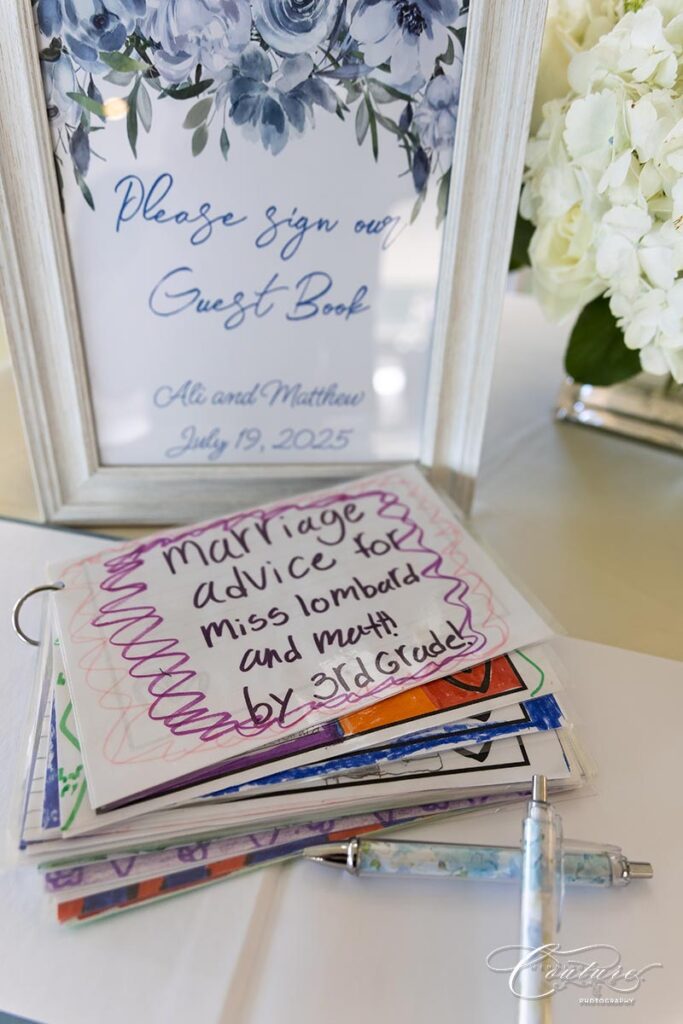 Please sign our
Guest Book
Ali and Matthew
July 19, 2025
Marriage
advice for
miss lombard
and matt!
by 3rd Grade!
Couture
PHOTOGRAPHY